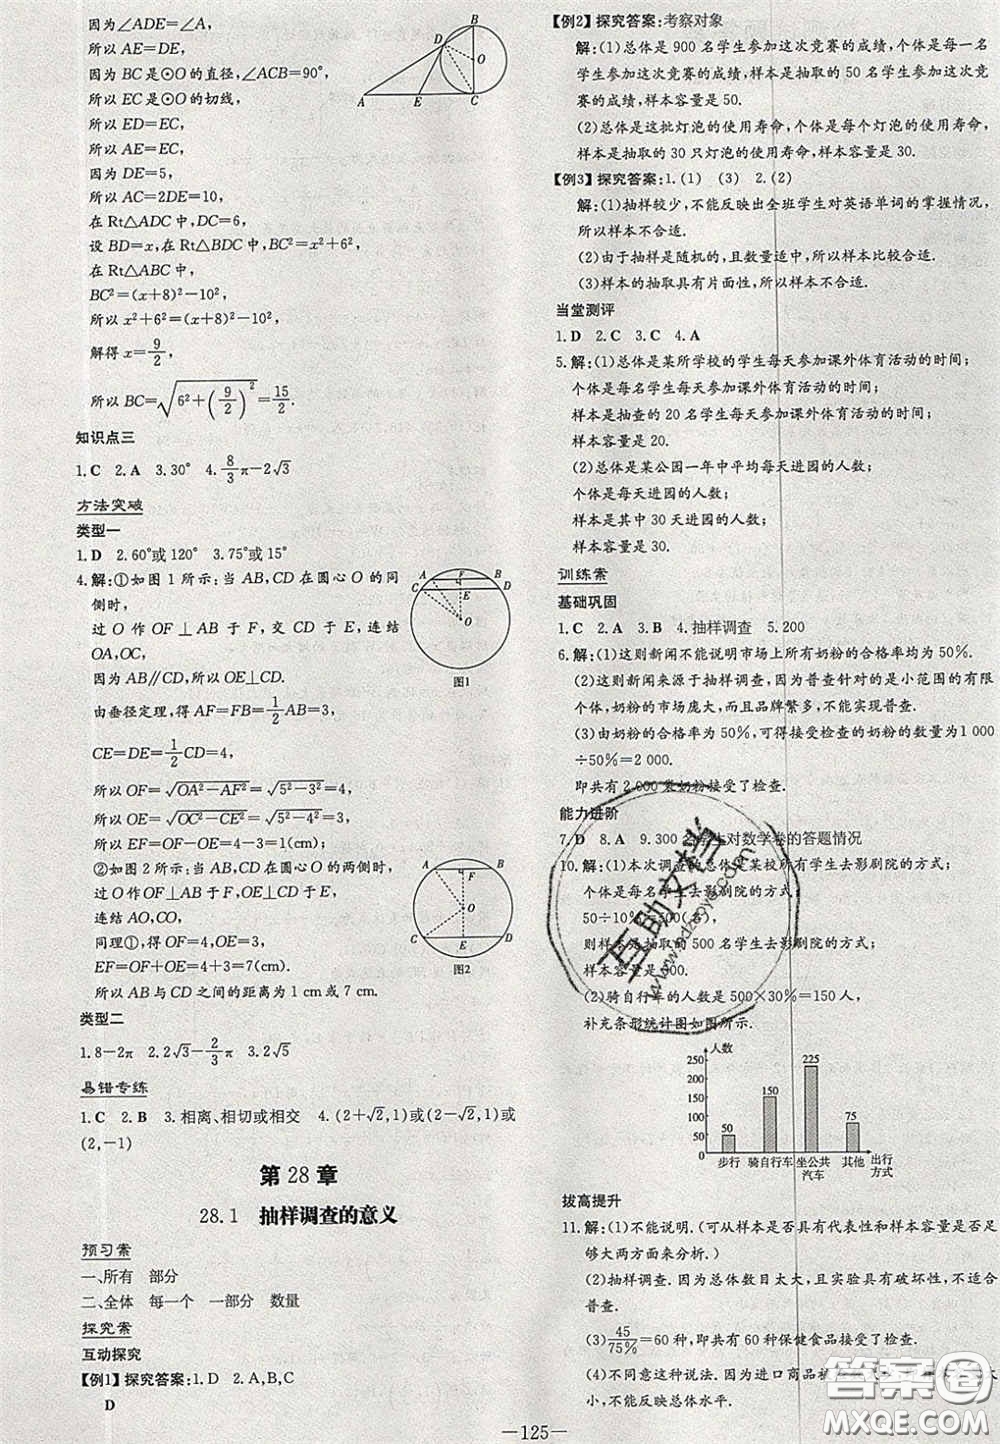 因为∠ADE=∠A,
所以 AE=DE,
因为 BC 是⊙O 的直径,∠ACB=90°,
所以 EC 是⊙O 的切线,
所以 ED=EC,
所以 AE=EC,
因为 DE=5,
所以 AC=2DE=10,
在 Rt△ADC 中,DC=6,
设 BD=x,在 Rt△BDC 中,BC²=x²+6²,
在 Rt△ABC 中,
BC²=(x+8)²-10²,
所以 x²+6²=(x+8)²-10²,
解得 x=9/2,
所以 BC=√(6²+(9/2)²)=15/2.
B
D
O
A
E
C
知识点三
1.C 2.A 3.30° 4.8/3π-2√3
方法突破
类型一
1.D 2.60°或 120° 3.75°或 15°
4.解:①如图 1 所示:当 AB,CD 在圆心 O 的同
侧时,
过 O 作 OF⊥AB 于 F,交 CD 于 E,连结
OA,OC,
因为 AB∥CD,所以 OE⊥CD.
由垂径定理,得 AF=FB=1/2AB=3,
CE=DE=1/2CD=4,
所以 OF=√(OA²-AF²)=√(5²-3²)=4,
所以 OE=√(OC²-CE²)=√(5²-4²)=3,
所以 EF=OF-OE=4-3=1(cm).
②如图 2 所示:当 AB,CD 在圆心 O 的两侧时,
过 O 作 OF⊥AB 于 F,OE⊥CD 于 E,
连结 AO,CO,
同理①,得 OF=4,OE=3,
EF=OF+OE=4+3=7(cm).
所以 AB 与 CD 之间的距离为 1 cm 或 7 cm.
A
F
B
C
E
D
O
图1
A
F
B
O
C
E
D
图2
类型二
1.8-2π 2.2√3-2/3π 3.2√5
易错专练
1.C 2.B 3.相离、相切或相交 4.(2+√2,1)或(2-√2,1)或
(2,-1)
第 28 章
28.1 抽样调查的意义
预习案
一、所有 部分
二、全体 每一个 一部分 数量
探究案
互动探究
【例1】探究答案:1.D 2.A,B,C
D
【例2】探究答案:考察对象
解:(1)总体是 900 名学生参加这次竞赛的成绩,个体是每一名
学生参加这次竞赛的成绩,样本是抽取的 50 名学生参加这次竞
赛的成绩,样本容量是 50.
(2)总体是这批灯泡的使用寿命,个体是每个灯泡的使用寿命,
样本是抽取的 30 只灯泡的使用寿命,样本容量是 30.
【例3】探究答案:1.(1) (3) 2.(2)
解:(1)抽样较少,不能反映出全班学生对英语单词的掌握情况,
所以样本不合适.
(2)由于抽样是随机的,且数量适中,所以样本比较合适.
(3)样本的抽取具有片面性,所以样本不合适.
当堂测评
1.D 2.C 3.C 4.A
5.解:(1)总体是某所学校的学生每天参加课外体育活动的时间;
个体是每名学生每天参加课外体育活动的时间;
样本是抽查的 20 名学生每天参加课外体育活动的时间;
样本容量是 20.
(2)总体是某公园一年中平均每天进园的人数;
个体是每天进园的人数;
样本是其中 30 天进园的人数;
样本容量是 30.
训练案
基础巩固
1.C 2.A 3.B 4.抽样调查 5.200
6.解:(1)这则新闻不能说明市场上所有奶粉的合格率均为 50%.
(2)这则新闻来源于抽样调查,因为普查针对的是小范围的有限
个体,奶粉的市场庞大,而且品牌繁多,不能实现普查.
(3)由奶粉的合格率为 50%,可得接受检查的奶粉的数量为 1 000
÷50%=2 000.
即共有 2 000 袋奶粉接受了检查.
能力进阶
7.D 8.A 9.300 名学生对数学卷的答题情况
10.解:(1)本次调查的总体是某校所有学生去影剧院的方式;
个体是每名学生去影剧院的方式.
50÷10%=500(人),
则样本是抽取的 500 名学生去影剧院的方式;
样本容量是 500.
(2)骑自行车的人数是 500×30%=150 人,
补充条形统计图如图所示.
人数
250
200
150
100
50
0
50
150
225
75
步行 骑自行车 坐公共汽车 其他 出行方式
拔高提升
11.解:(1)不能说明.(可从样本是否具有代表性和样本容量是否足
够大两方面来分析.)
(2)抽样调查.因为总体数目太大,且实验具有破坏性,不适合
普查.
(3)45/75%=60 种,即共有 60 种保健食品接受了检查.
(4)不同意这种说法.因为进口商品
小,不能反映总体水平.
—125—
互助文档
www.hdzagye.com
答案圈
MXQE.COM